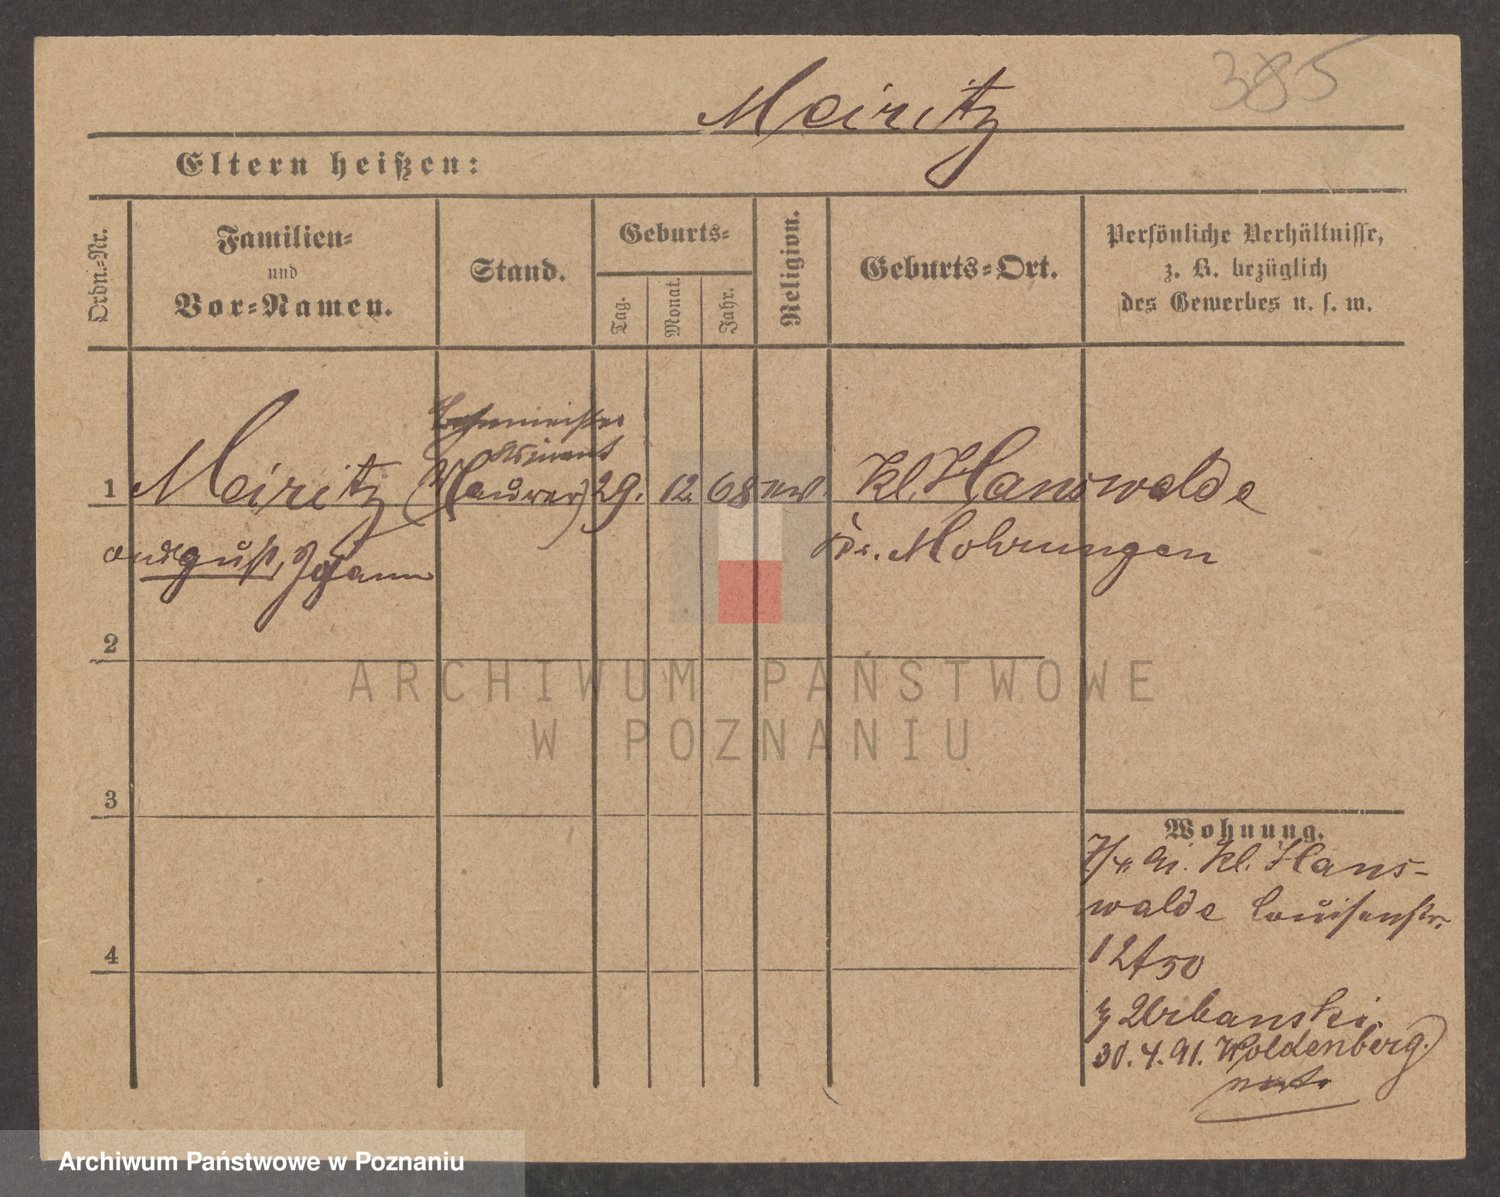 385
Meiritz
Eltern heißen:
Ordn.-Nr.
Familien-
und
Vor-Namen.
Stand.
Geburts-
Tag.
Monat.
Jahr.
Religion.
Geburts-Ort.
Persönliche Verhältnisse,
z. B. bezüglich
des Gewerbes u. s. w.
1 Meiritz (Maurer) 29. 12. 68 ev. Kl. Hanswalde
August, Johann Kr. Mohrungen
2
3
4
Wohnung.
91. Kl. Hans-
walde Louisenstr.
12
Urbanski.
30. 4. 91. Woldenberg
ARCHIWUM PAŃSTWOWE
W POZNANIU
Archiwum Państwowe w Poznaniu